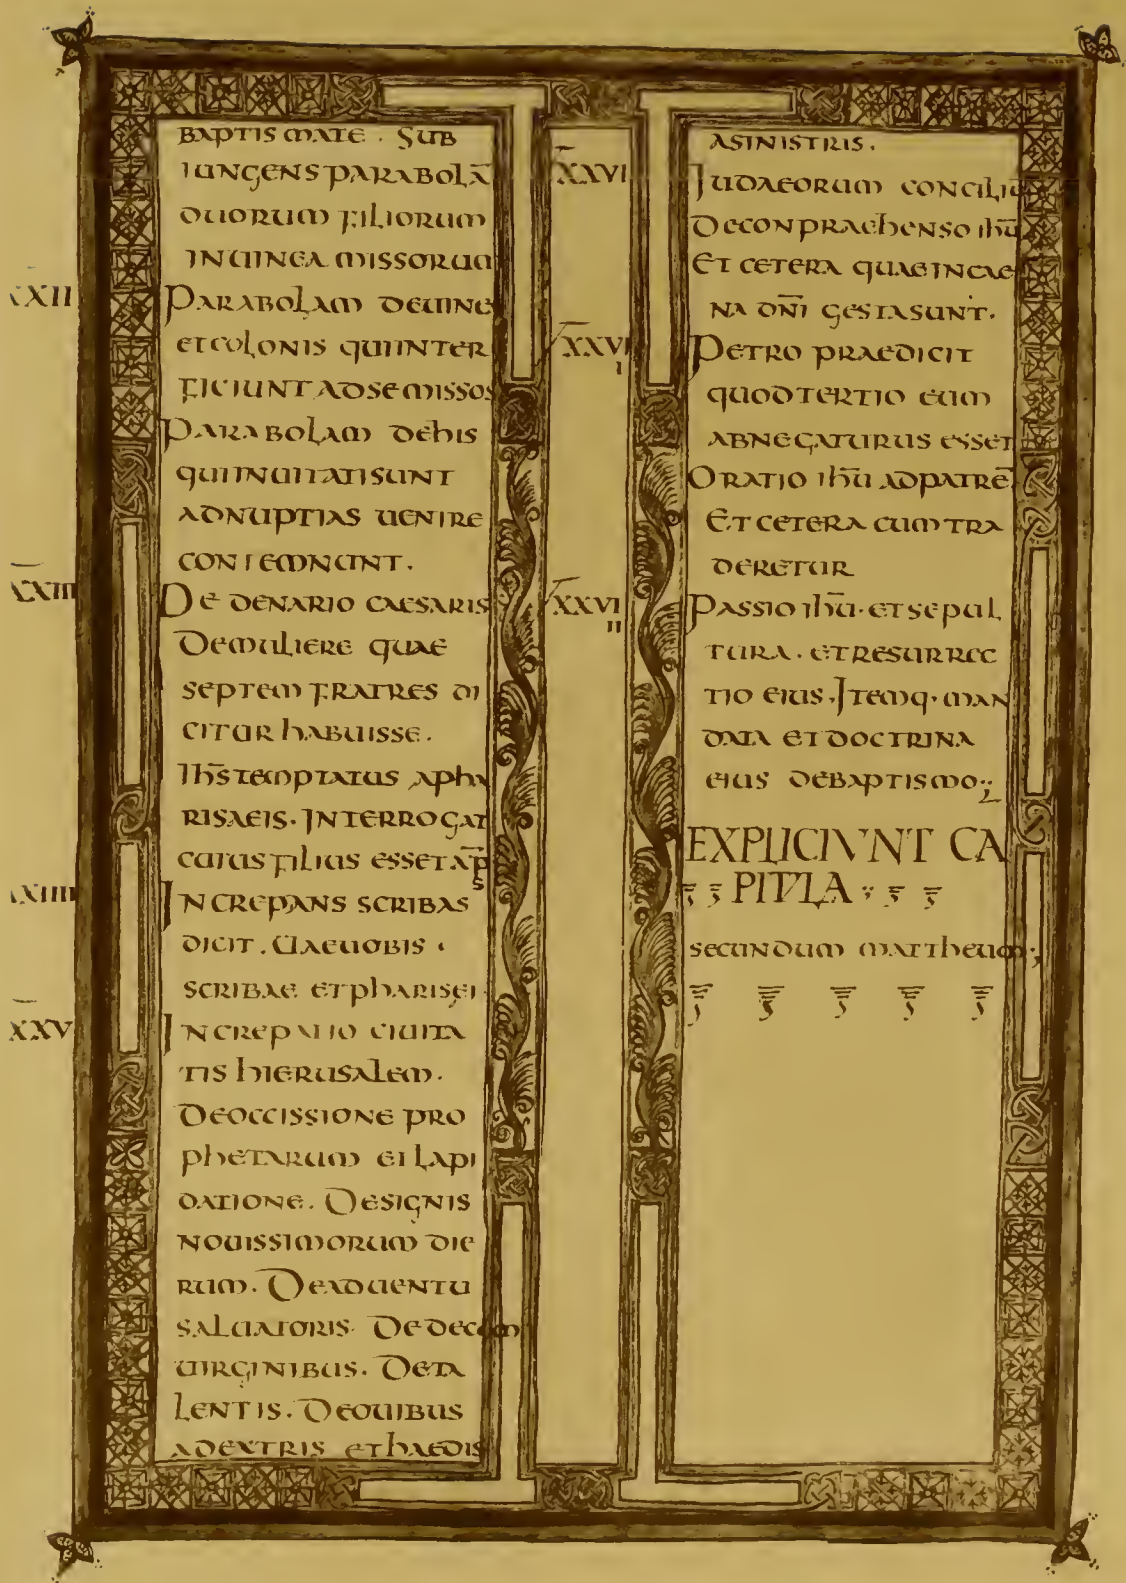 BAPTISMATE . SUB
IUNGENS PARABOLĀ
DUORUM FILIORUM
IN UINEA MISSORUM
XXII PARABOLAM DEUINE
ET COLONIS QUI INTER
FICIUNT AD SE MISSOS
PARABOLAM DE HIS
QUI INUITATI SUNT
AD NUPTIAS UENIRE
CONTEMNUNT .
XXIII DE DENARIO CAESARIS
DE MULIERE QUAE
SEPTEM FRATRES DI
CITUR HABUISSE .
IHS̄ TEMPTATUS A PHA
RISAEIS . INTERROGAT
CUIUS FILIUS ESSET XP̄S
XXIIII INCREPANS SCRIBAS
DICIT . UAE UOBIS .
SCRIBAE ET PHARISEI .
XXV INCREPATIO CIUITA
TIS HIERUSALEM .
DE OCCISSIONE PRO
PHETARUM ET LAPI
DATIONE . DE SIGNIS
NOUISSIMORUM DIE
RUM . DE ADUENTU
SALUATORIS . DE DECEM
UIRGINIBUS . DE TA
LENTIS . DE OUIBUS
A DEXTRIS ET HAEDIS
A SINISTRIS .
XXVI IUDAEORUM CONCILIU
DE CONPRAEHENSO IHŪ
ET CETERA QUAE IN CAE
NA DN̄I GESTA SUNT .
XXVII PETRO PRAEDICIT
QUOD TERTIO EUM
ABNEGATURUS ESSET
ORATIO IHŪ AD PATRĒ
ET CETERA CUM TRA
DERETUR
XXVIII PASSIO IHŪ . ET SEPUL
TURA . ET RESURREC
TIO EIUS . ITEMQ . MAN
DATA ET DOCTRINA
EIUS DE BAPTISMO ;
EXPLICIVNT CA
PITVLA
SECUNDUM MATTHEUM ;